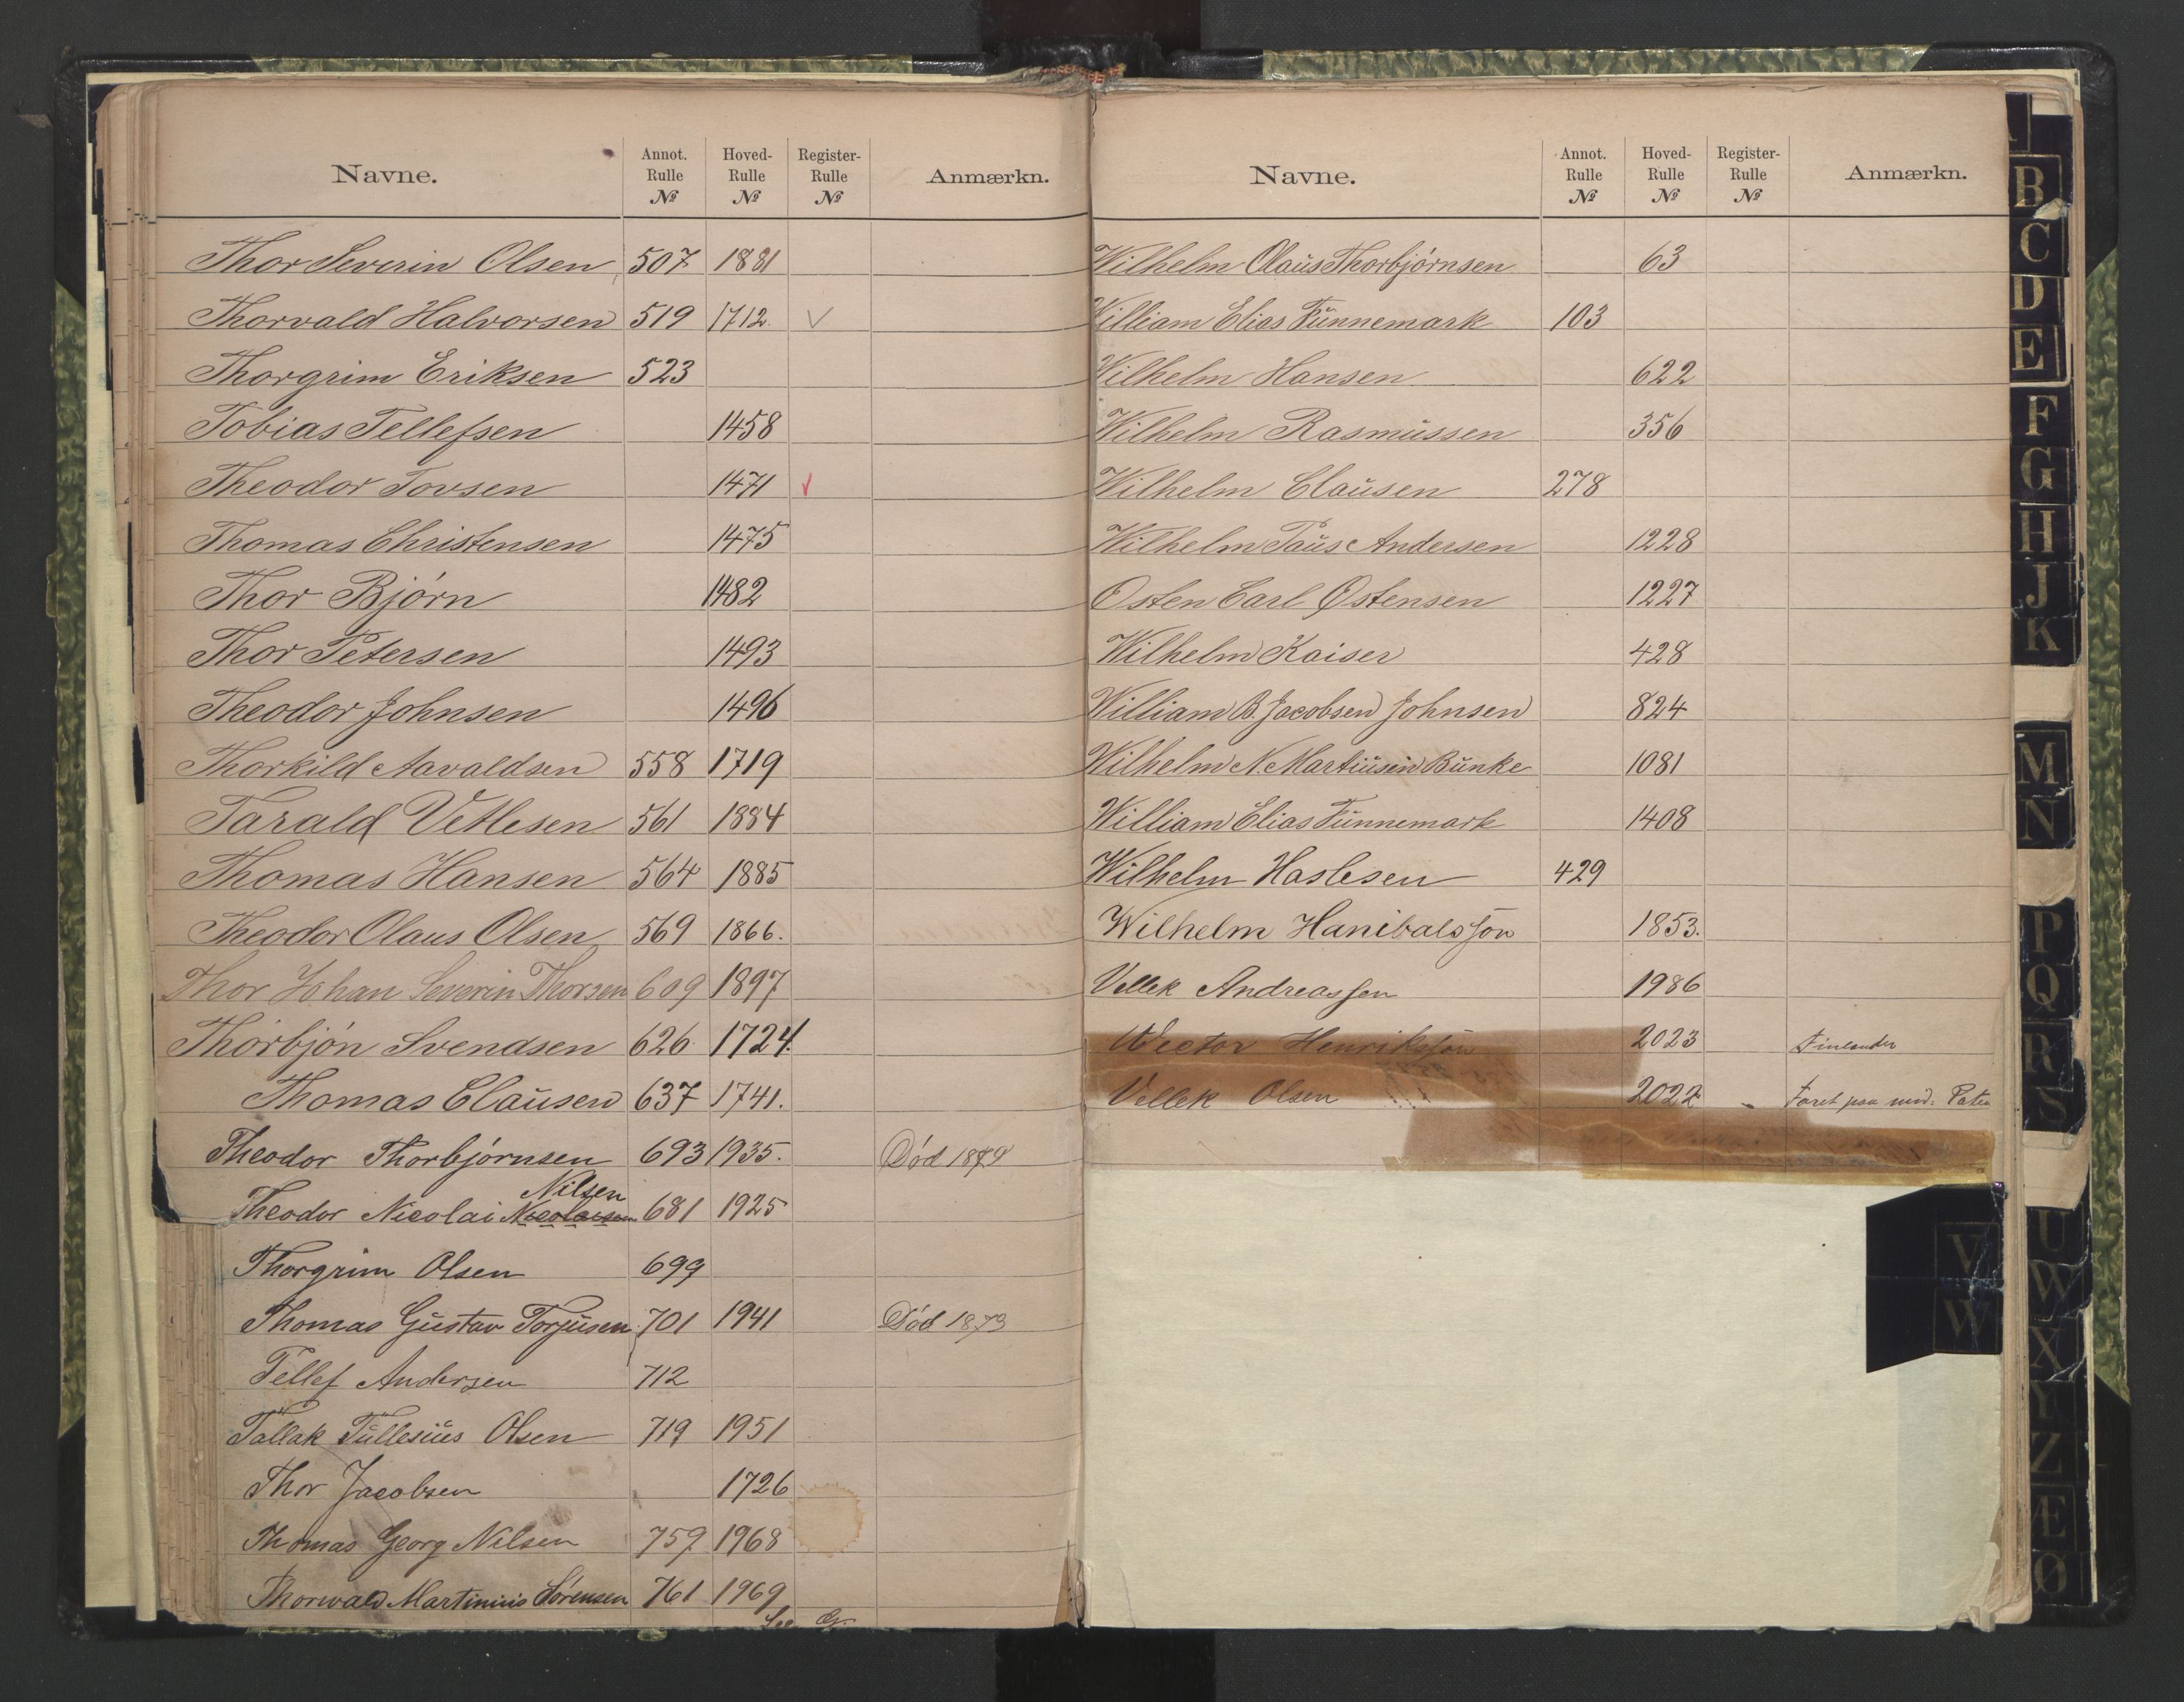 Navne. Annot. Rulle № Hoved- Rulle № Register- Rulle № Anmærkn.
Thor Severin Olsen 507 1881
Thorvald Halvorsen 519 1712. ✓
Thorgrim Eriksen 523
Tobias Tellefsen 1458
Theodor Tovsen 1471 ✓
Thomas Christensen 1475
Thor Bjørn 1482
Thor Petersen 1493
Theodor Johnsen 1496
Thorkild Aavaldsen 558 1719
Tarald Vetlesen 561 1884
Thomas Hansen 564 1885
Theodor Olaus Olsen 569 1866.
Thor Johan Severin Thorsen 609 1897
Thorbjón Svendsen 626 1724.
Thomas Claüsen 637 1741.
Theodor Thorbjørnsen 693 1935. Død 1879
Nilsen
Theodor Nicolai Nicolaisen 681 1925
Thorgrim Olsen 699
Thomas Güstav Torjüsen 701 1941 Død 1873
Tellef Andersen 712
Tallak Tüllesiüs Olsen 719 1951
Thor Jacobsen 1726
Thomas Georg Nilsen 759 1968
Thorwald Martinius Sørensen 761 1969
Navne. Annot. Rulle № Hoved- Rulle № Register- Rulle № Anmærkn.
Wilhelm Olaüs Thorbjørnsen 63
William Elias Fünnemark 103
Wilhelm Hansen 622
Wilhelm Rasmüssen 356
Wilhelm Claüsen 278
Wilhelm Paüs Andersen 1228
Osten Carl Østensen 1227
Wilhelm Kaiser 428
William B. Jacobsen Johnsen 824
Wilhelm N. Martiüsen Bünke 1081
William Elias Fünnemark 1408
Wilhelm Haslesen 429
Wilhelm Hanibalssøn 1853.
Vellek Andreassen 1986
Wictor Henrikssøn 2023 Finlander
Vellek Olsen 2022 Faret paa
B
C
D
E
F
G
H
J
K
M
N
P
Q
R
S
U
V
W
W
X
Y
Z
Æ
Ø